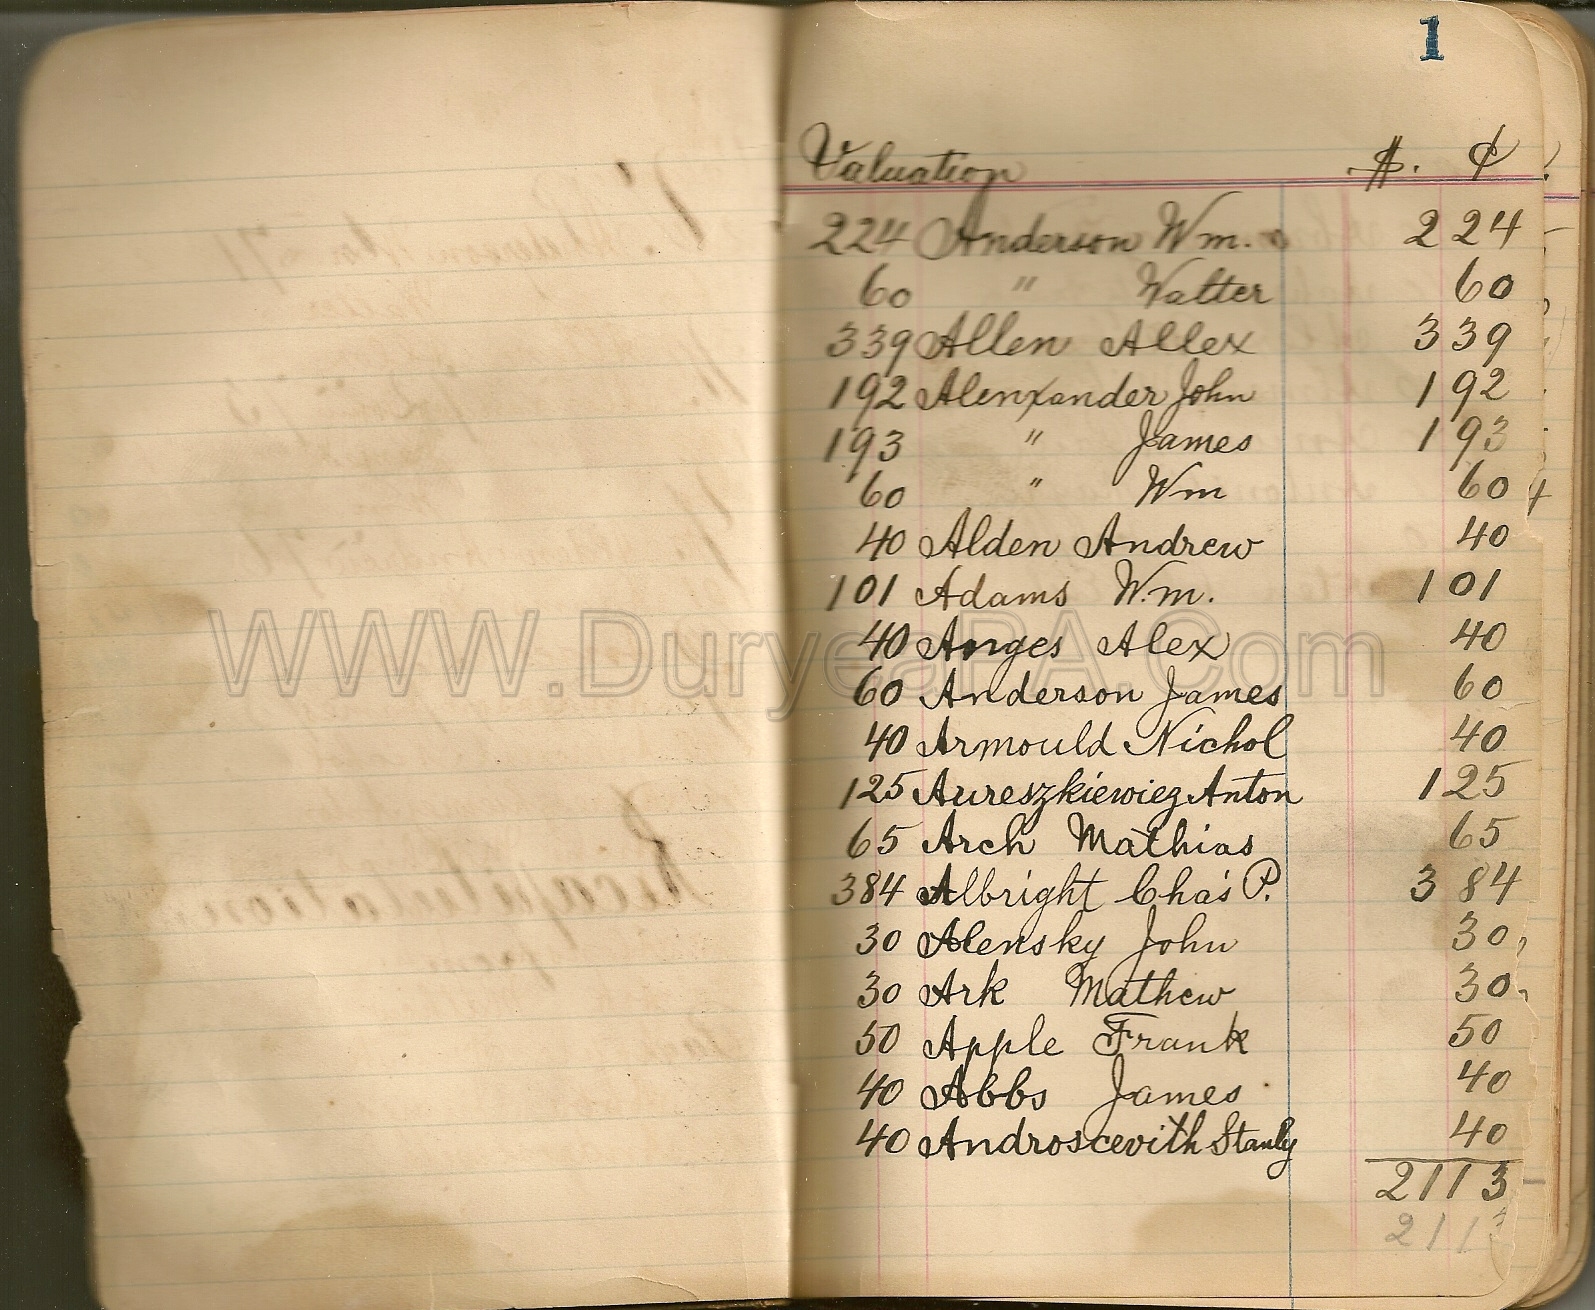 1
Valuation $. ¢
224 Anderson Wm. 2 24
60 " Walter 60
339 Allen Allex 3 39
192 Alenxander John 1 92
193 " James 1 93
60 " Wm 60
40 Alden Andrew 40
101 Adams W.m. 1 01
WWW.DuryeaPA.Com
40 Anges Alex 40
60 Anderson James 60
40 Armould Nichol 40
125 Aureszkiewiez Anton 1 25
65 Arch Mathias 65
384 Albright Cha's P. 3 84
30 Alensky John 30
30 Ark Mathew 30
50 Apple Frank 50
40 Abbs James 40
40 Androscevith Stanly 40
2113
211